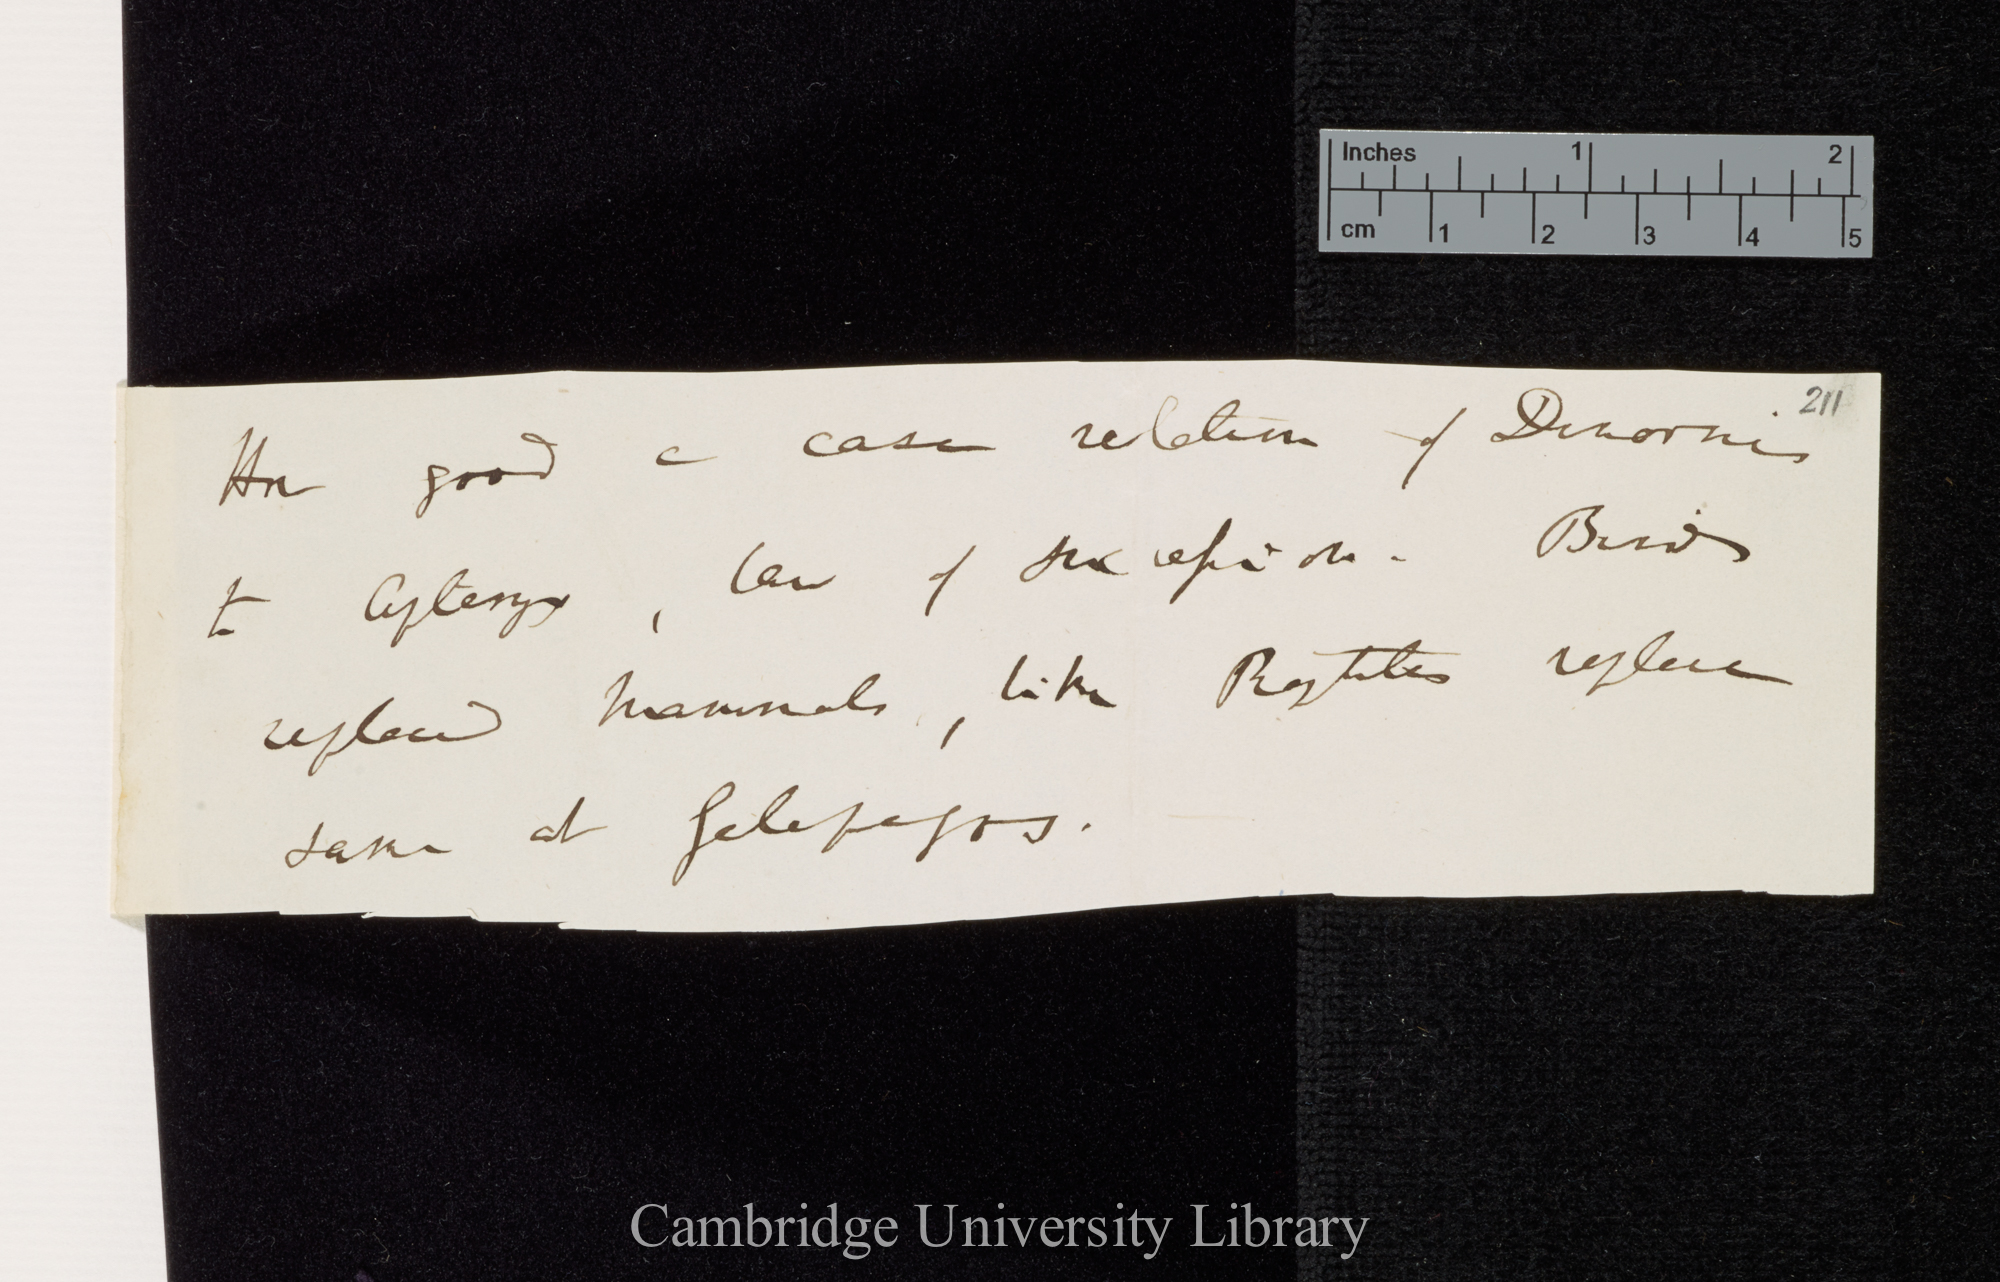 Inches 1 2
cm 1 2 3 4 5
211
How good a case relation of Dinornis
to Apteryx, law of succession. Birds
replaced Mammals, like Reptiles replace
same at Galapagos.
Cambridge University Library